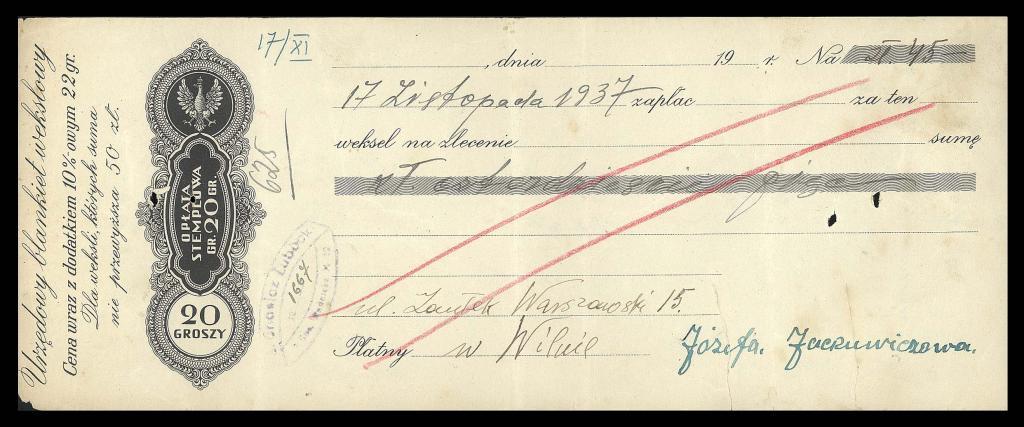 Urzędowy blankiet wekslowy
Cena wraz z dodatkiem 10%-owym 22 gr.
Dla weksli, których suma
nie przewyższa 50 zł.
OPŁATA
STEMPLOWA
GR. 20 GR.
20
GROSZY
17/XI
625
1667
, dnia 19 r. Na zł. 45
17 Listopada 1937 zapłac za ten
weksel na zlecenie sumę
zł. czterdzieści pięć
ul. Zaułek Warszawski 15.
Płatny w Wilnie
Józefa. Jackiewiczowa.